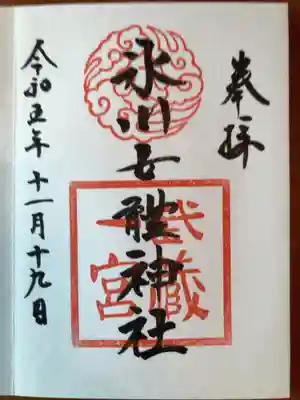 奉拝
氷川女體神社
武蔵
一宮
令和五年十一月十九日